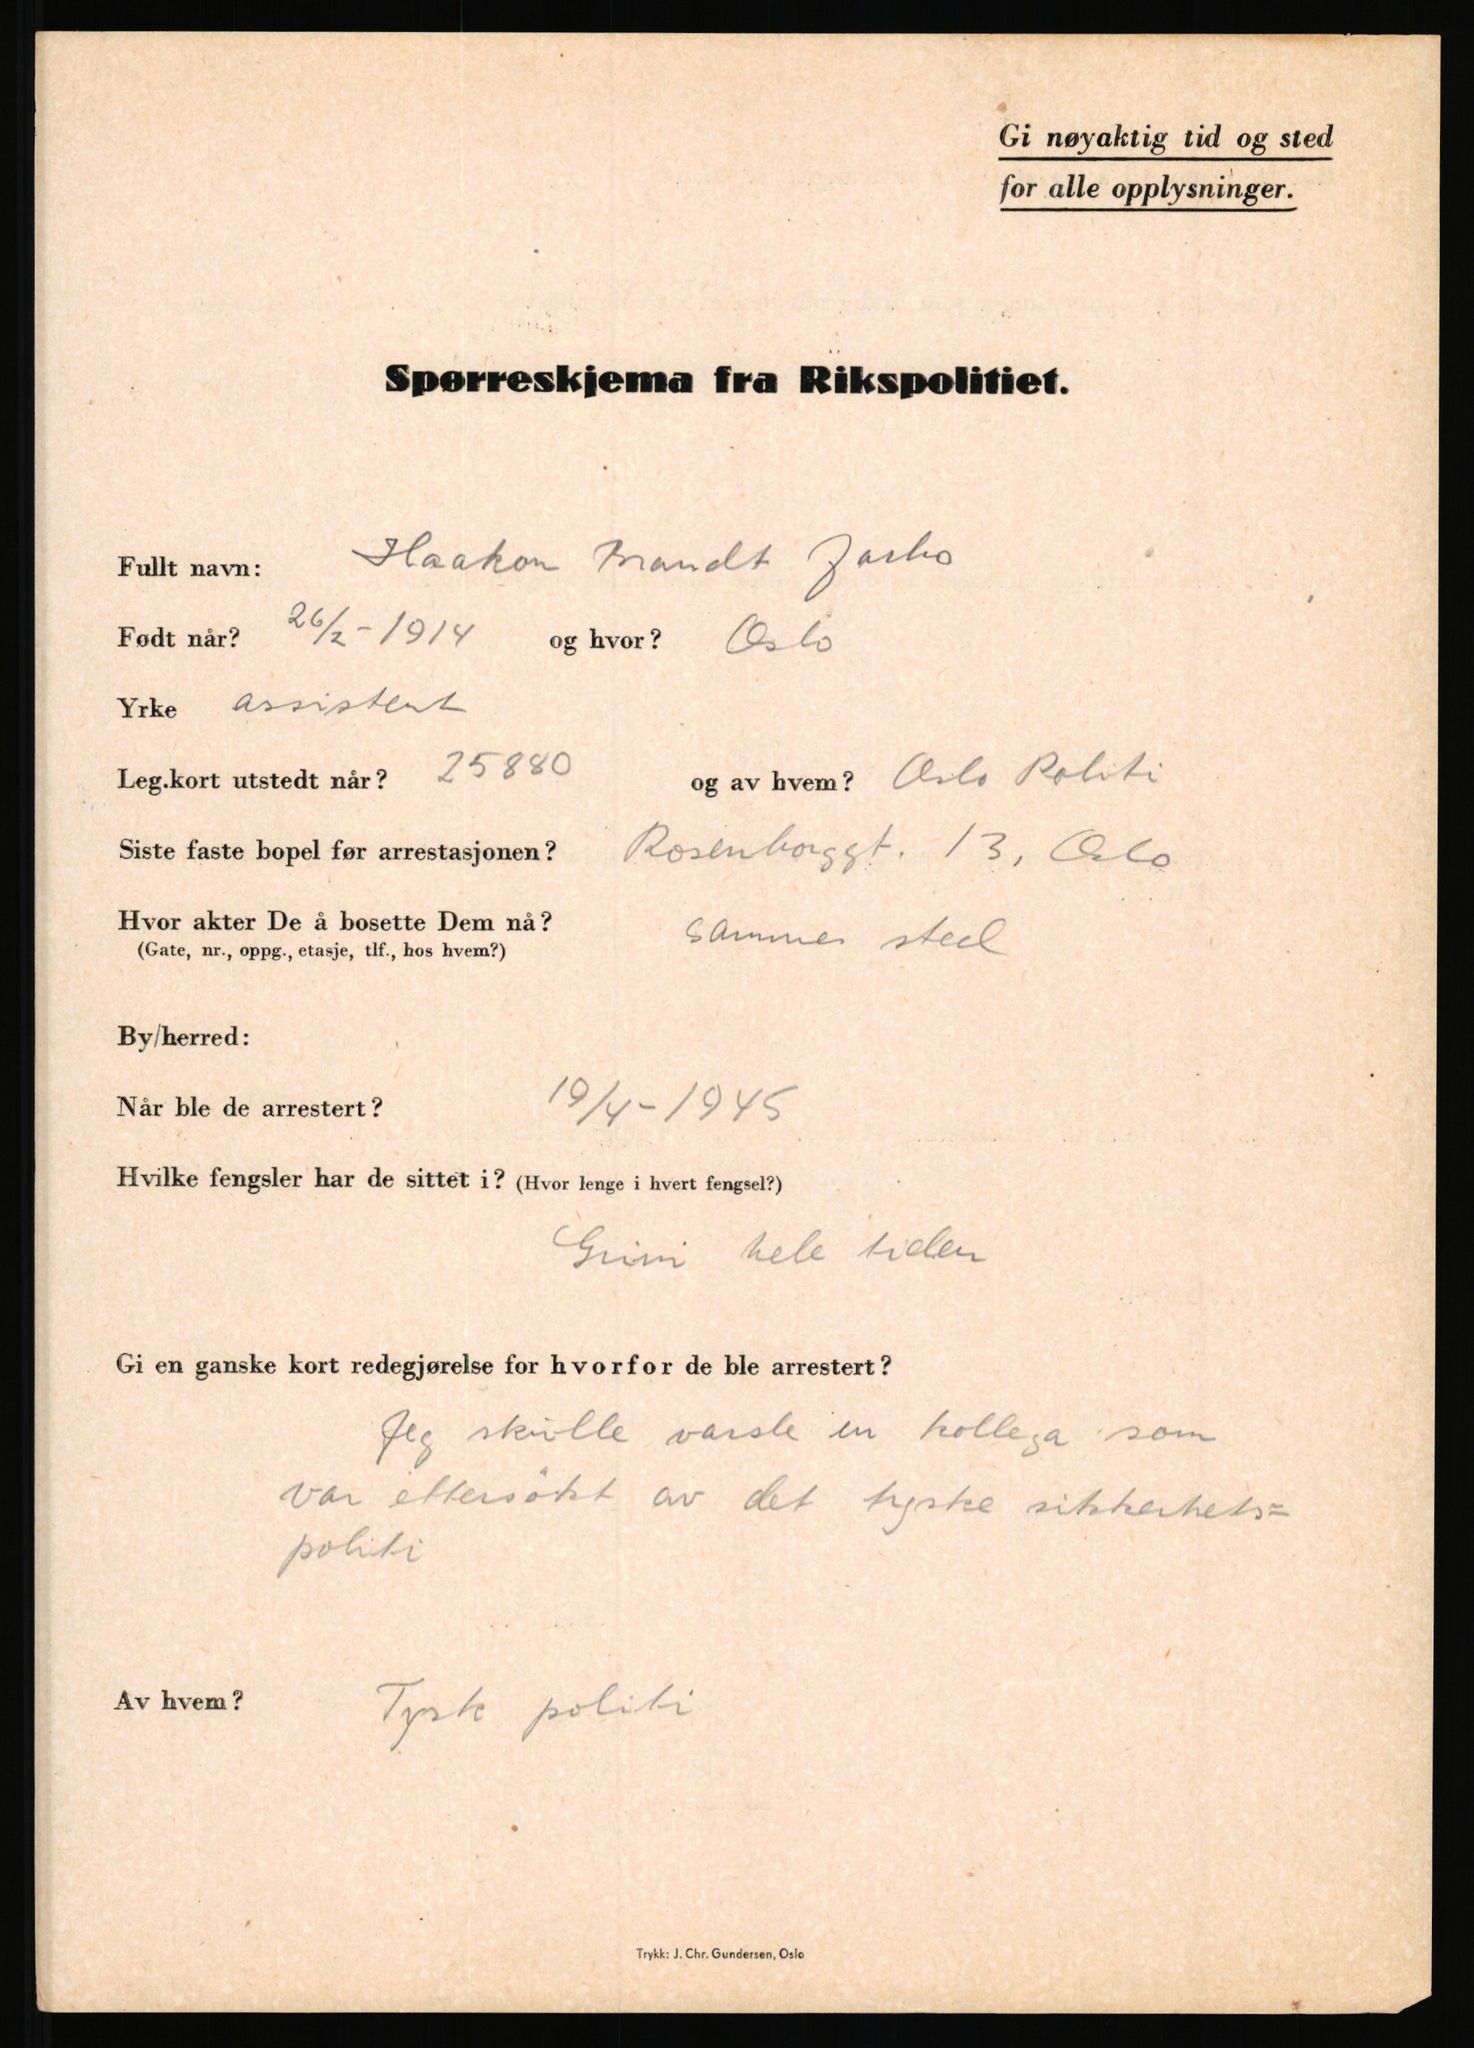 Gi nøyaktig tid og sted
for alle opplysninger.
Spørreskjema fra Rikspolitiet.
Fullt navn: Haakon Brandt
Født når? 26/2-1914 og hvor? Oslo
Yrke assistent
Leg.kort utstedt når? 25880 og av hvem? Oslo Politi
Siste faste bopel før arrestasjonen? Rosenborggt. 13, Oslo
Hvor akter De å bosette Dem nå? sammes sted
(Gate, nr., oppg., etasje, tlf., hos hvem?)
By/herred:
Når ble de arrestert? 19/4-1945
Hvilke fengsler har de sittet i? (Hvor lenge i hvert fengsel?)
Grini hele tiden
Gi en ganske kort redegjørelse for hvorfor de ble arrestert?
Jeg skulle varsle en kollega som
var ettersökt av det tyske sikkerhets=
politi
Av hvem? Tysk politi
Trykk: J. Chr. Gundersen, Oslo